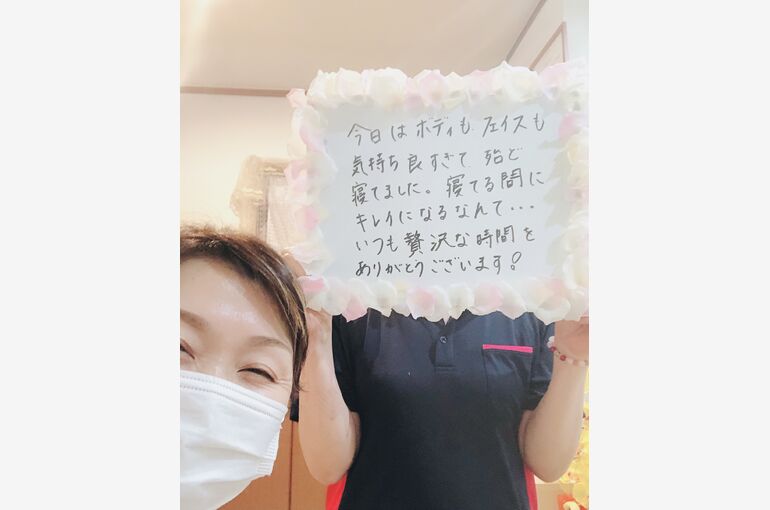 今日はボディも フェイスも
気持ち良すぎて 殆ど
寝てました。寝てる間に
キレイになるなんて...
いつも贅沢な時間を
ありがとうございます!